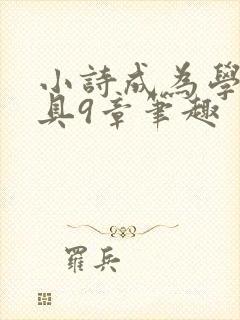 小詩成為學
具9章筆趣
羅兵